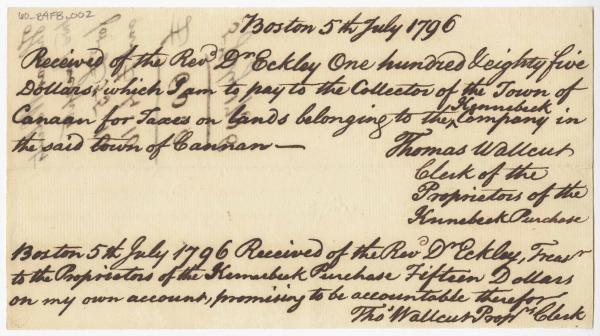 60-2AFB.002
Boston 5th July 1796
Received of the Revd Dr Eckley One hundred & eighty five
Dollars, which I am to pay to the Collector of the Town of
Canaan for Taxes on lands belonging to the Kennebeck Company in
the said town of Cannan —
Thomas Wallcut
Clerk of the
Proprietors of the
Kennebeck Purchase
Boston 5th July 1796 Received of the Revd Dr Eckley, Treasr
to the Proprietors of the Kennebeck Purchase Fifteen Dollars
on my own account, promising to be accountable therefor
Thos Wallcut Proprs Clerk